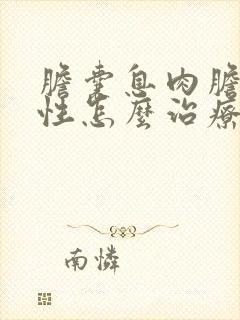 膽囊息肉膽
性怎麼治療
南憐